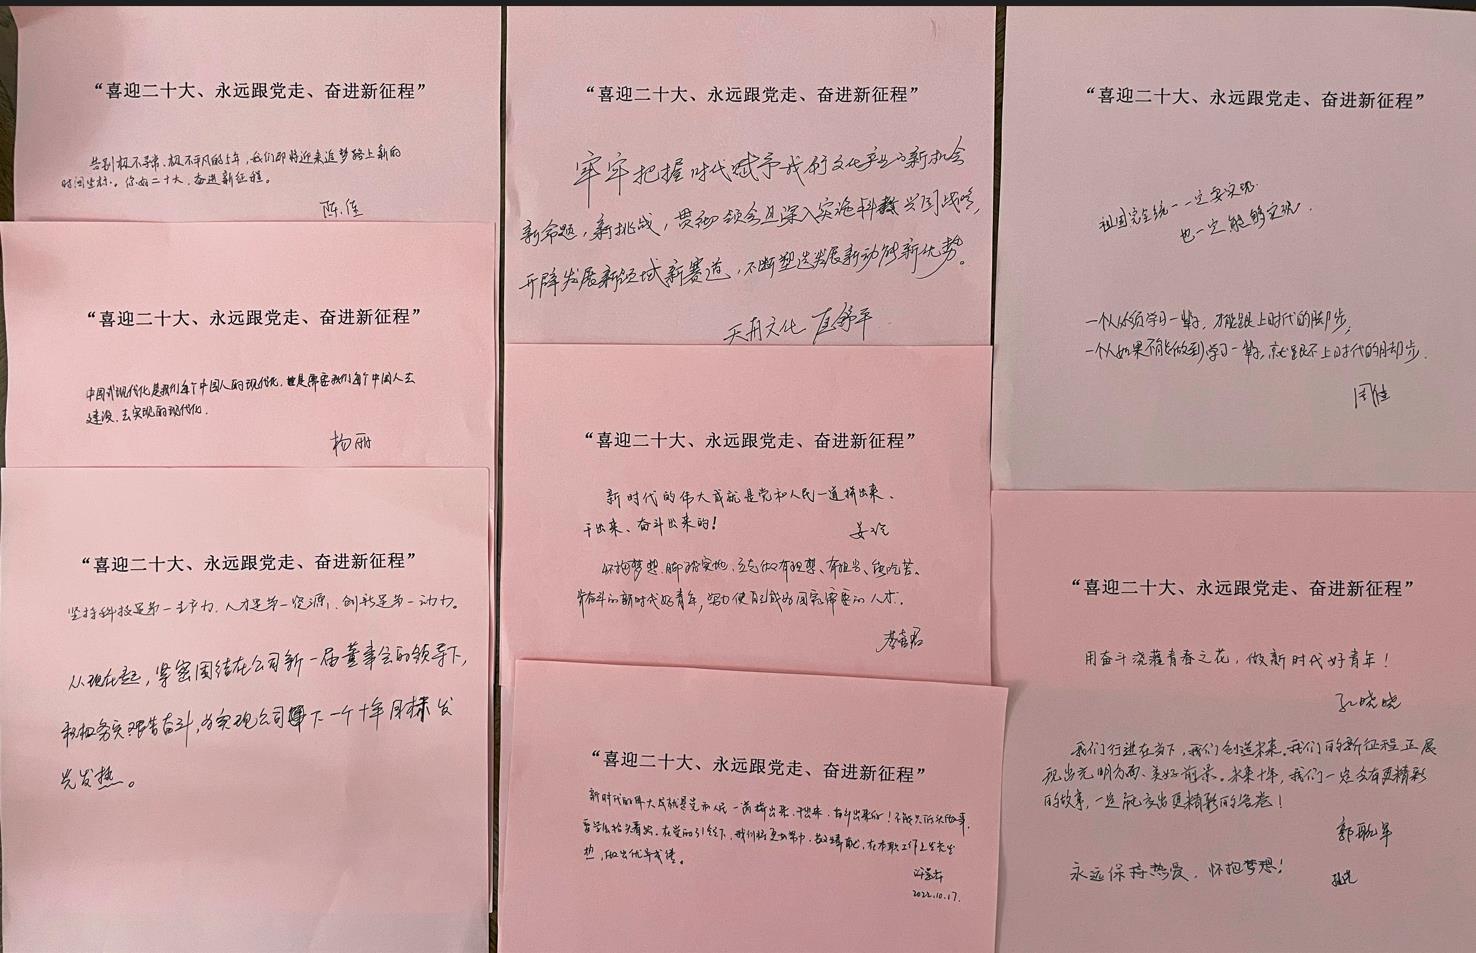 “喜迎二十大、永远跟党走、奋进新征程”
告别极不寻常、极不平凡的5年，我们即将迎来追梦路上新的
时间坐标。你好二十大，奋进新征程。
陈佳
“喜迎二十大、永远跟党走、奋进新征程”
中国式现代化是我们每个中国人的现代化，也是需要我们每个中国人去
建设、去实现的现代化。
杨丽
“喜迎二十大、永远跟党走、奋进新征程”
坚持科技是第一生产力，人才是第一资源，创新是第一动力。
从现在起，紧密团结在公司新一届董事会的领导下，
积极务实艰苦奋斗，为实现公司下一个十年目标发
光发热。
“喜迎二十大、永远跟党走、奋进新征程”
牢牢把握时代赋予我们文化产业的新机会
新命题，新挑战，贯彻领会且深入实施科教兴国战略，
开辟发展新领域新赛道，不断塑造发展新动能新优势。
天舟文化
“喜迎二十大、永远跟党走、奋进新征程”
新时代的伟大成就是党和人民一道拼出来、
干出来、奋斗出来的！
姜玲
怀抱梦想、脚踏实地，立志做有理想、有担当、能吃苦、
肯奋斗的新时代好青年，努力使自己成为国家需要的人才。
“喜迎二十大、永远跟党走、奋进新征程”
新时代的伟大成就是党和人民一道拼出来、干出来、奋斗出来的！不能只低头做事，
要学会抬头看路。在党的引领下，我们将更加努力，在本职工作上发光发
热，做出优异成绩。
2022.10.17.
“喜迎二十大、永远跟党走、奋进新征程”
祖国完全统一一定要实现，
也一定能够实现。
一个人必须学习一辈子，才能跟上时代的脚步，
一个人如果不能做到学习一辈子，就跟不上时代的脚步。
周佳
“喜迎二十大、永远跟党走、奋进新征程”
用奋斗浇灌青春之花，做新时代好青年！
孔晓晓
我们行进在当下，我们创造未来。我们的新征程正展
现出光明方面、美好前景。未来十年，我们一定会有更精彩
的故事，一定能交出更精彩的答卷！
永远保持热爱，怀抱梦想！